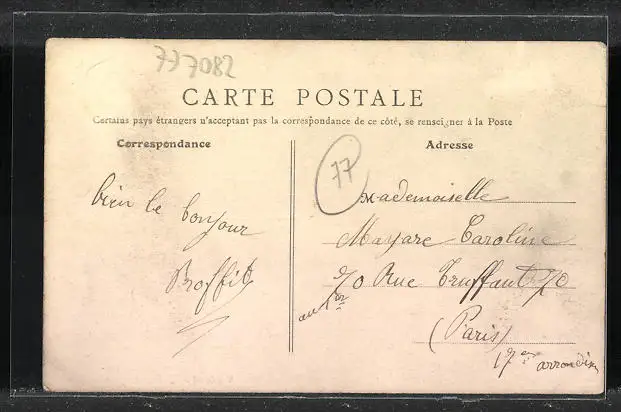 777082
CARTE POSTALE
Certains pays étrangers n'acceptant pas la correspondance de ce côté, se renseigner à la Poste
Correspondance
Adresse
77
bien le bonjour
Mademoiselle
Mayare Caroline
70 Rue Truffaut 70
au 1er
(Paris)
17em arrondis